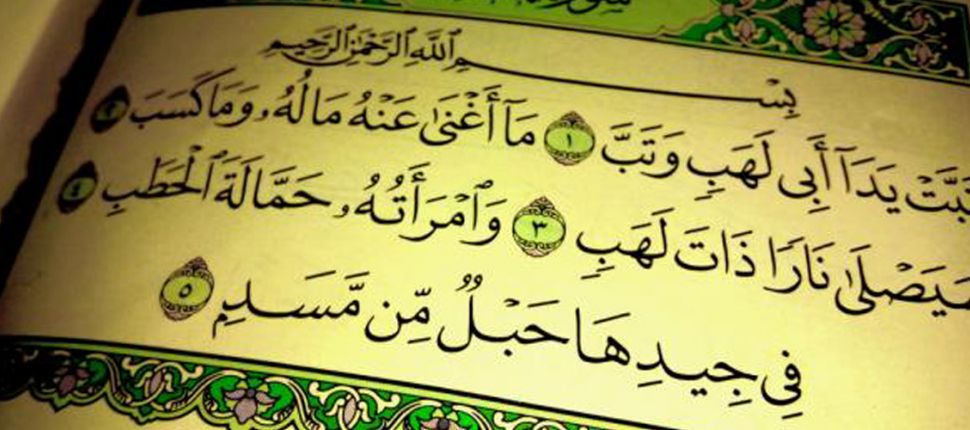 سورة
بِسْمِ ٱللَّهِ ٱلرَّحْمَٰنِ ٱلرَّحِيمِ
تَبَّتْ يَدَآ أَبِى لَهَبٍ وَتَبَّ ١ مَآ أَغْنَىٰ عَنْهُ مَالُهُۥ وَمَا كَسَبَ ٢
سَيَصْلَىٰ نَارًا ذَاتَ لَهَبٍ ٣ وَٱمْرَأَتُهُۥ حَمَّالَةَ ٱلْحَطَبِ ٤
فِى جِيدِهَا حَبْلٌ مِّن مَّسَدٍۭ ٥